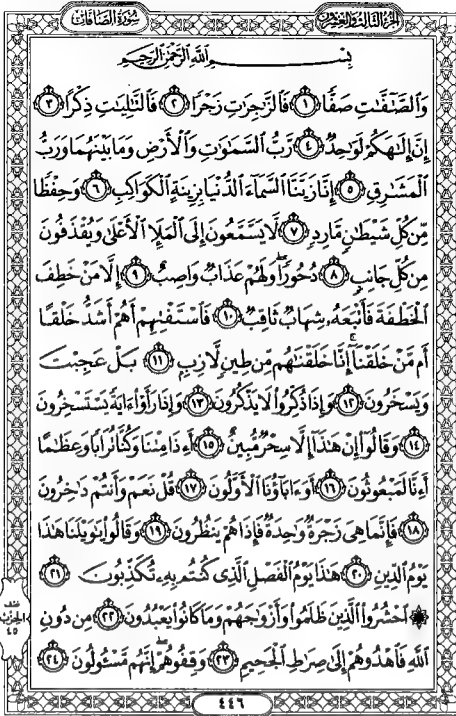 سُورَةُ الصَّافَّاتِ
الجُزْءُ الثَّالِثُ وَالعِشْرُونَ
بِسْمِ اللَّهِ الرَّحْمَٰنِ الرَّحِيمِ
وَالصَّٰٓفَّٰتِ صَفًّا ١ فَالزَّٰجِرَٰتِ زَجْرًا ٢ فَالتَّٰلِيَٰتِ ذِكْرًا ٣
إِنَّ إِلَٰهَكُمْ لَوَٰحِدٌ ٤ رَّبُّ السَّمَٰوَٰتِ وَالْأَرْضِ وَمَا بَيْنَهُمَا وَرَبُّ
الْمَشَٰرِقِ ٥ إِنَّا زَيَّنَّا السَّمَآءَ الدُّنْيَا بِزِينَةٍ الْكَوَاكِبِ ٦ وَحِفْظًا
مِّن كُلِّ شَيْطَٰنٍ مَّارِدٍ ٧ لَّا يَسَّمَّعُونَ إِلَى الْمَلَإِ الْأَعْلَىٰ وَيُقْذَفُونَ
مِن كُلِّ جَانِبٍ ٨ دُحُورًا ۖ وَلَهُمْ عَذَابٌ وَاصِبٌ ٩ إِلَّا مَنْ خَطِفَ
الْخَطْفَةَ فَأَتْبَعَهُۥ شِهَابٌ ثَاقِبٌ ١٠ فَاسْتَفْتِهِمْ أَهُمْ أَشَدُّ خَلْقًا
أَم مَّنْ خَلَقْنَآ ۚ إِنَّا خَلَقْنَٰهُم مِّن طِينٍ لَّازِبٍۭ ١١ بَلْ عَجِبْتَ
وَيَسْخَرُونَ ١٢ وَإِذَا ذُكِّرُوا۟ لَا يَذْكُرُونَ ١٣ وَإِذَا رَأَوْا۟ ءَايَةً يَسْتَسْخِرُونَ
١٤ وَقَالُوٓا۟ إِنْ هَٰذَآ إِلَّا سِحْرٌ مُّبِينٌ ١٥ أَءِذَا مِتْنَا وَكُنَّا تُرَابًا وَعِظَٰمًا
أَءِنَّا لَمَبْعُوثُونَ ١٦ أَوَءَابَآؤُنَا الْأَوَّلُونَ ١٧ قُلْ نَعَمْ وَأَنتُمْ دَٰخِرُونَ
١٨ فَإِنَّمَا هِىَ زَجْرَةٌ وَٰحِدَةٌ فَإِذَا هُمْ يَنظُرُونَ ١٩ وَقَالُوا۟ يَٰوَيْلَنَا هَٰذَا
يَوْمُ الدِّينِ ٢٠ هَٰذَا يَوْمُ الْفَصْلِ الَّذِى كُنتُم بِهِۦ تُكَذِّبُونَ ٢١
۞ احْشُرُوا۟ الَّذِينَ ظَلَمُوا۟ وَأَزْوَٰجَهُمْ وَمَا كَانُوا۟ يَعْبُدُونَ ٢٢ مِن دُونِ
اللَّهِ فَاهْدُوهُمْ إِلَىٰ صِرَٰطِ الْجَحِيمِ ٢٣ وَقِفُوهُمْ ۖ إِنَّهُم مَّسْـُٔولُونَ ٢٤
الحِزْب
٤٥
٤٤٦